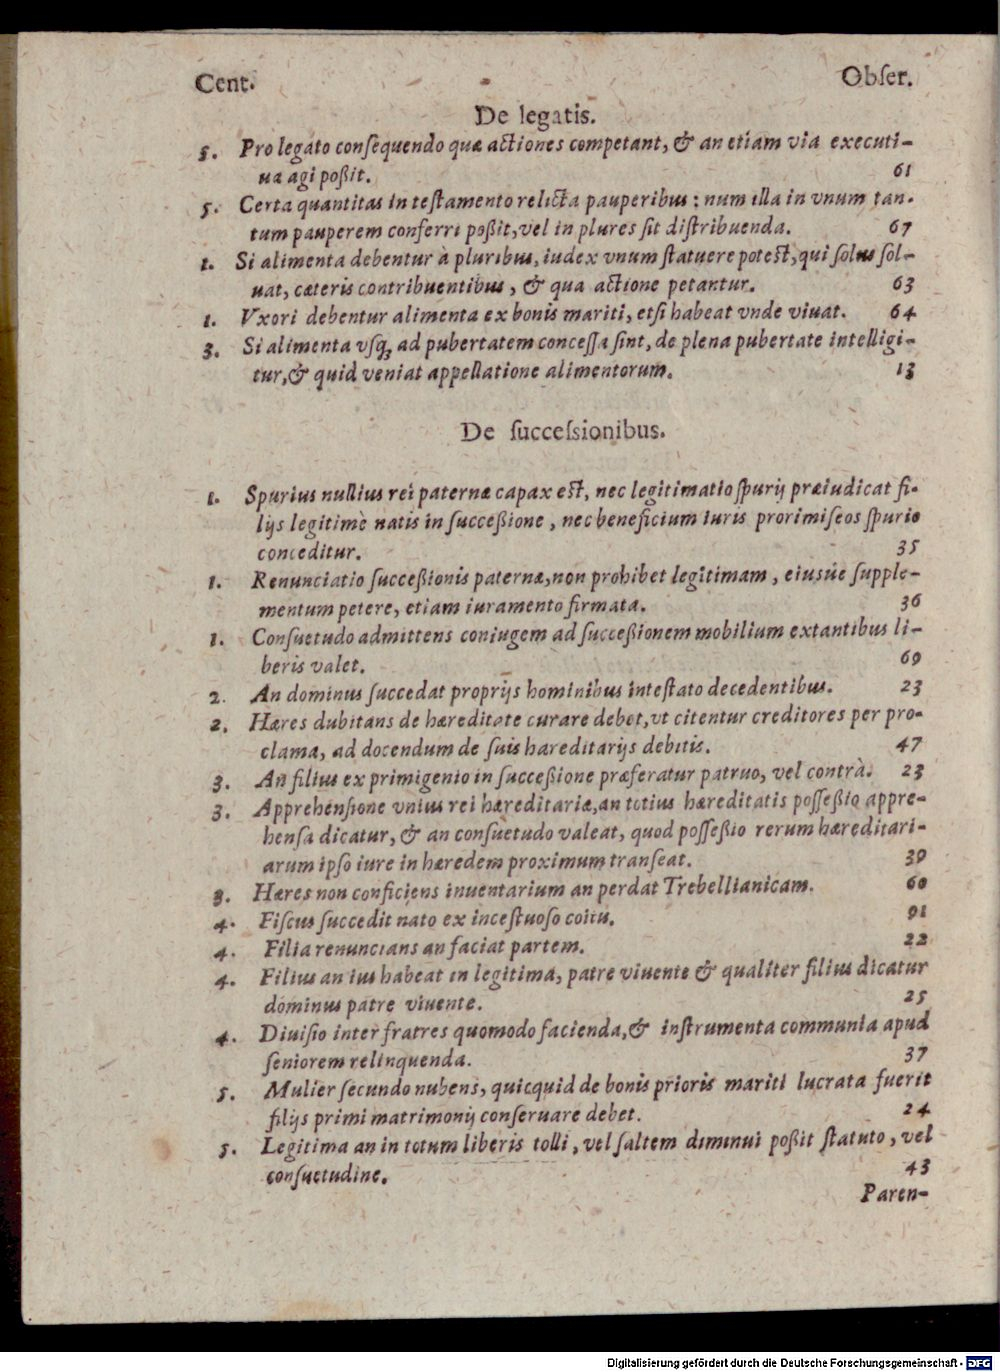 Cent. Obſer.
De legatis.
5. Pro legato conſequendo quæ actiones competant, & an etiam via executi-
ua agi poßit. 61
5. Certa quantitas in teſtamento relicta pauperibus : num illa in vnum tan-
tum pauperem conferri poßit, vel in plures ſit diſtribuenda. 67
1. Si alimenta debentur à pluribus, iudex vnum ſtatuere poteſt, qui ſolus ſol-
uat, cæteris contribuentibus, & qua actione petantur. 63
1. Vxori debentur alimenta ex bonis mariti, etſi habeat vnde viuat. 64
3. Si alimenta vſq; ad pubertatem conceſſa ſint, de plena pubertate intelligi-
tur, & quid veniat appellatione alimentorum. 13
De ſucceſsionibus.
1. Spurius nullius rei paternæ capax eſt, nec legitimatio ſpurij præiudicat fi-
lijs legitimè natis in ſucceßione, nec beneficium iuris prorimiſeos ſpurio
conceditur. 35
1. Renunciatio ſucceßionis paternæ, non prohibet legitimam, eiusúe ſupple-
mentum petere, etiam iuramento firmata. 36
1. Conſuetudo admittens coniugem ad ſucceßionem mobilium extantibus li-
beris valet. 69
2. An dominus ſuccedat proprijs hominibus inteſtato decedentibus. 23
2. Hæres dubitans de hæreditate curare debet, vt citentur creditores per pro-
clama, ad docendum de ſuis hareditarijs debitis. 47
3. An filius ex primigenio in ſucceßione præferatur patruo, vel contrà. 23
3. Apprehenſione vnius rei hæreditariæ, an totius hæreditatis poſſeßio appre-
henſa dicatur, & an conſuetudo valeat, quod poſſeßio rerum hæreditari-
arum ipſo iure in hæredem proximum tranſeat. 39
3. Hæres non conficiens inuentarium an perdat Trebellianicam. 60
4. Fiſcus ſuccedit nato ex inceſtuoſo coitu. 91
4. Filia renuncians an faciat partem. 22
4. Filius an ius habeat in legitima, patre viuente & qualiter filius dicatur
dominus patre viuente. 25
4. Diuiſio inter fratres quomodo facienda, & inſtrumenta communia apud
ſeniorem relinquenda. 37
5. Mulier ſecundo nubens, quicquid de bonis prioris mariti lucrata fuerit
filijs primi matrimonij conſeruare debet. 24
5. Legitima an in totum liberis tolli, vel ſaltem diminui poßit ſtatuto, vel
conſuetudine. 43
Paren-
Digitalisierung gefördert durch die Deutsche Forschungsgemeinschaft - DFG